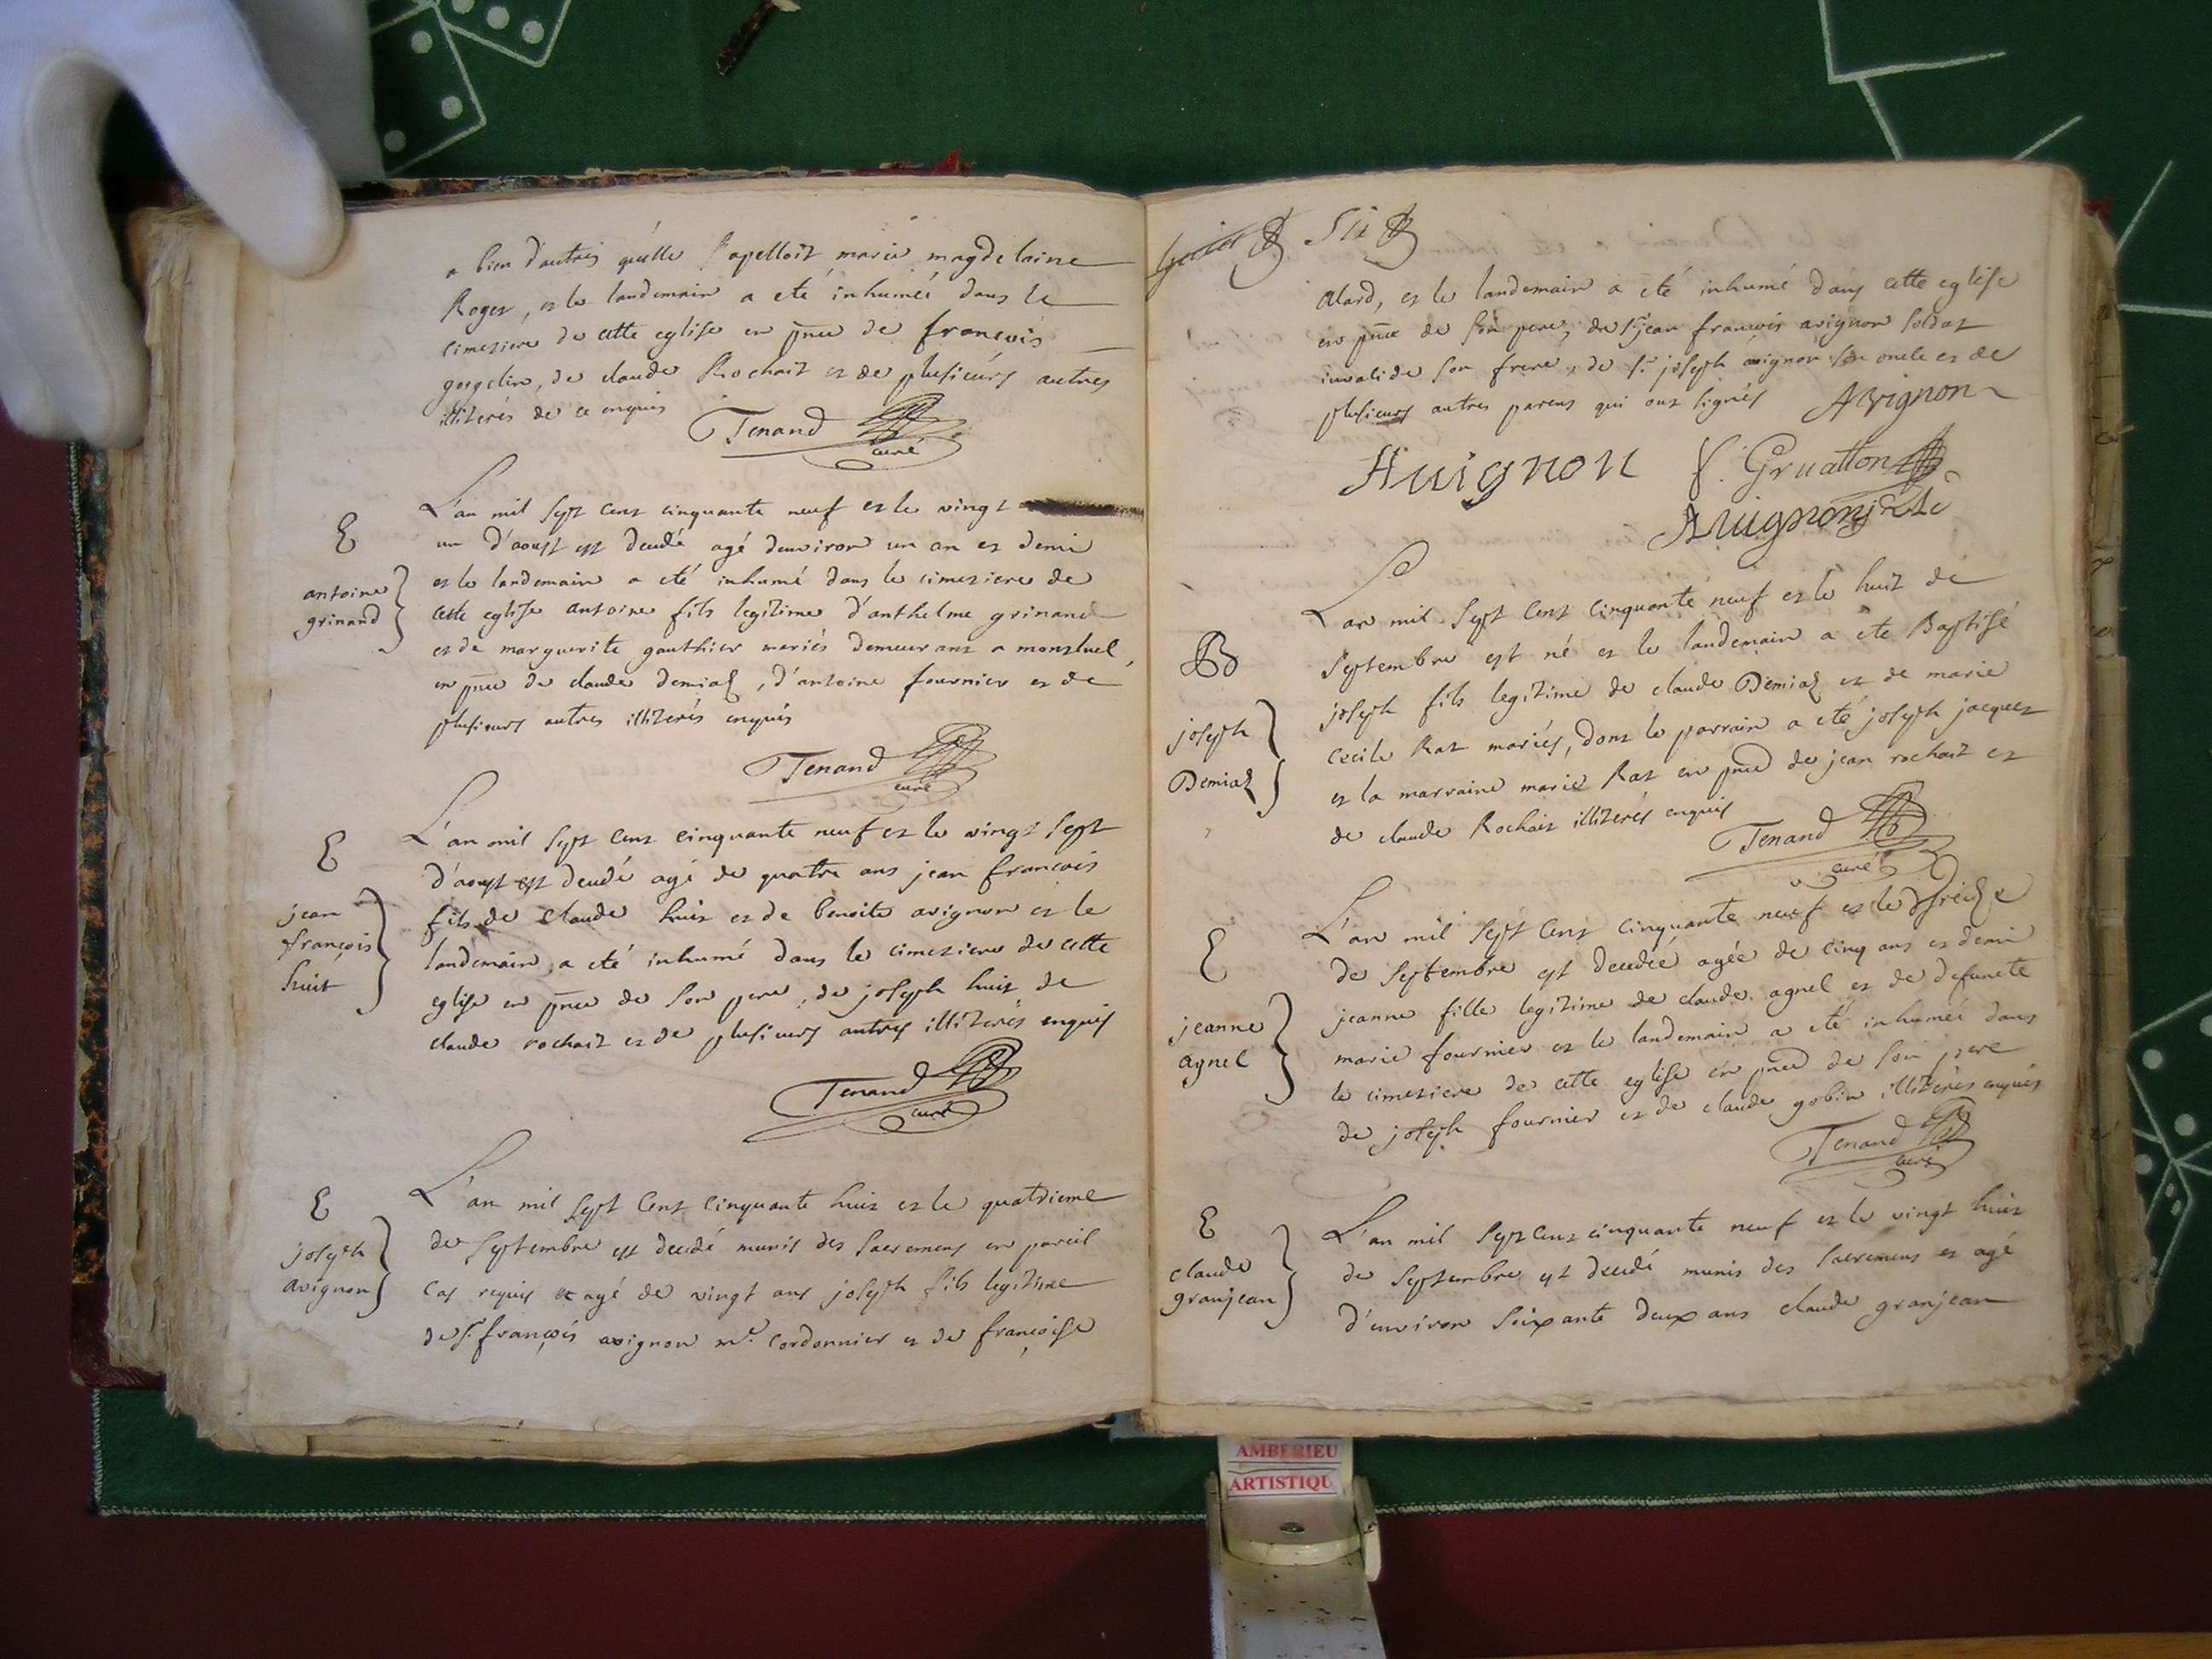 a bien d'autres qu'elle s'apelloit marie magdelaine
Roger, et le landemain a eté inhumée dans le
cimetiere de cette eglise en pnce de francois
gogelin, de claude Rochait et de plusieurs autres
illiterés de ce enquis
Tenand
curé
L'an mil sept cent cinquante neuf et le vingt
un d'aoust est decedé agé d'environ un an et demi
et le landemain a eté inhumé dans le cimetiere de
cette eglise antoine fils legitime d'anthelme grinand
et de marguerite gauthier mariés demeurant a montluel,
en pnce de claude demiaz, d'antoine fournier et de
plusieurs autres illiterés enquis
E
antoine
grinand
Tenand
curé
L'an mil sept cent cinquante neuf et le vingt sept
d'aoust est decedé agé de quatre ans jean francois
fils de claude huit et de benoite avignon et le
landemain a eté inhumé dans le cimetiere de cette
eglise en pnce de son pere, de joseph huit de
claude rochait et de plusieurs autres illiterés enquis
E
jean
françois
huit
Tenand
curé
L'an mil sept cent cinquante huit et le quatrieme
de septembre est decedé munis des sacremens en pareil
cas requis et agé de vingt ans joseph fils legitime
de sr. françois avignon me. cordonnier et de françoise
E
joseph
avignon
Six
alard, et le landemain a eté inhumé dans cette eglise
en pnce de son pere, de sr jean francois avignon soldat
invalide son frere, de sr. joseph avignon son oncle et de
plusieurs autres parens qui ont signés Avignon
Auignon f. Gruatton
Auignon
L'an mil sept cent cinquante neuf et le huit de
septembre est né et le landemain a ete Baptisé
joseph fils legitime de claude Demiaz et de marie
cecile Rat mariés, dont le parrain a eté joseph jacquet
et la marraine marie Rat en pnce de jean rochait et
de claude Rochait illiterés enquis
B
joseph
Demiaz
Tenand
curé
L'an mil sept cent cinquante neuf et le treize
de septembre est decedée agée de cinq ans et demi
jeanne fille legitime de claude agnel et de defuncte
marie fournier et le landemain a eté inhumée dans
le cimetiere de cette eglise en pnce de son pere
de joseph fournier et de claude gobin illiterés enquis
E
jeanne
agnel
Tenand
curé
L'an mil sept cent cinquante neuf et le vingt huit
de septembre est decedé munis des sacremens et agé
d'environ soixante deux ans claude granjean
E
claude
granjean
AMBERIEU
ARTISTIQU